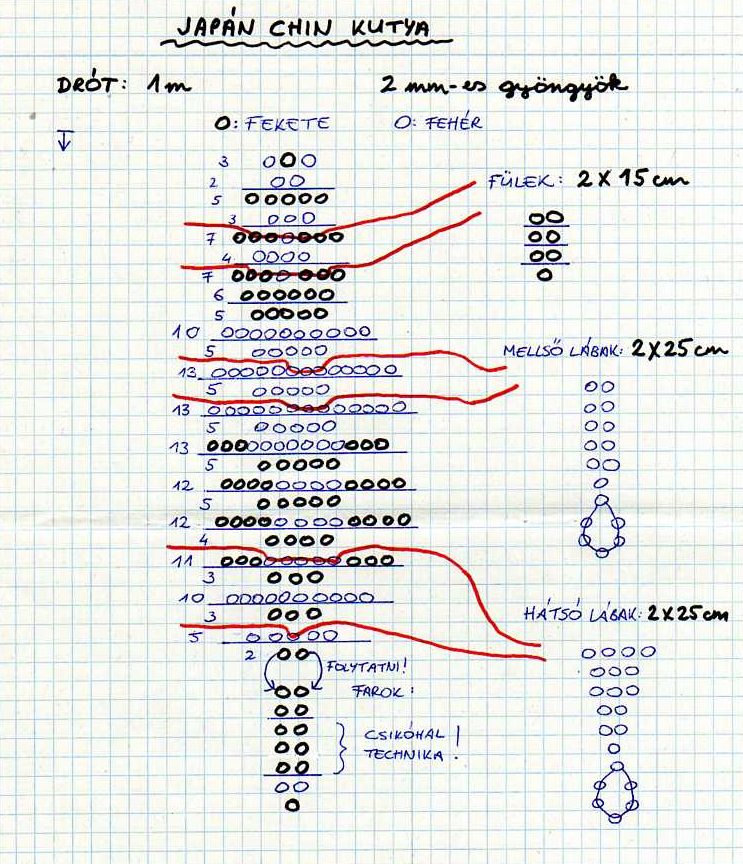 JAPÁN CHIN KUTYA
DRÓT: 1m
2 mm-es gyöngyök
O: FEKETE O: FEHÉR
3
2
5
3
7
4
7
6
5
10
5
13
5
13
5
13
5
12
5
12
4
11
3
10
3
5
2
FOLYTATNI!
FAROK:
CSIKÓHAL
TECHNIKA!
FÜLEK: 2 X 15 cm
MELLSŐ LÁBAK: 2X25 cm
HÁTSÓ LÁBAK: 2X25 cm